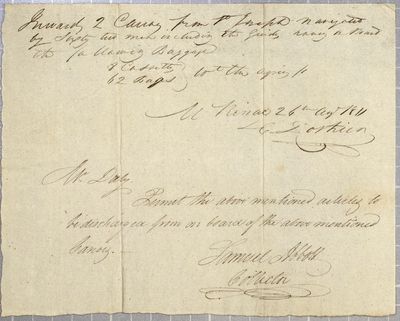 Inward 2 Canoes from St Joseph navigated
by Sixty two men including the Guide having on board
the following Baggage
8 Cassetts
62 Bags
Mc Kinac 26th Augt 1811
Mr Daly
Permit the above mentioned articles to
be discharged from on board of the above mentioned
Canoes.
Samuel Abbott
Collector